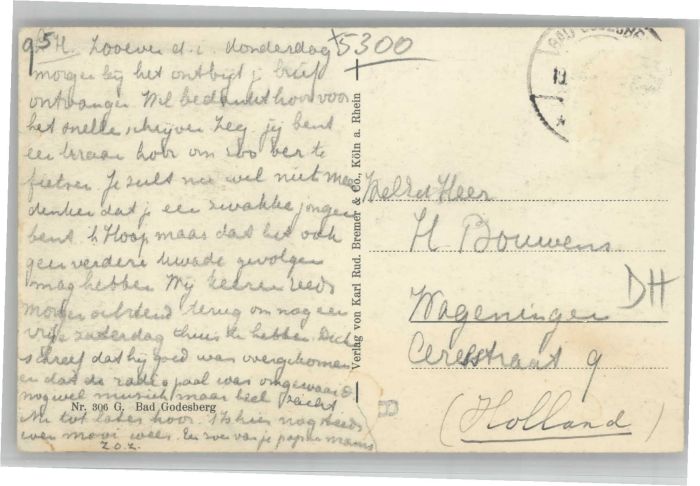 L. H. Zooeven d.i. donderdag
morgen bij het ontbijt je brief
ontvangen. Wel bedankt hoor voor
het snelle schrijven zeg. jij bent
een kraan hoor om zoo ver te
fietsen. Je zult nu wel niet meer
denken dat je een zwakke jongen
bent. 'k Hoop maar dat het ook
geen verdere kwade gevolgen
mag hebben. Wij keeren reeds
morgen ochtend terug om nog een
vrije zaterdag thuis te hebben. Dick
schreef dat hij goed was overgekomen
en dat de radiopaal was omgewaaid
nog wel muziek maar heel zacht
Nu tot later hoor. 't Is hier nog steeds
weer mooi weer. En zoen van je papa en mama
z.o.z.
Nr. 306 G. Bad Godesberg
Verlag von Karl Rud. Bremer & Co., Köln a. Rhein
5300
95
BAD GODESBERG
19
WelEd Heer
H Bouwens
Wageningen
DH
Ceresstraat 9
(Holland)
R